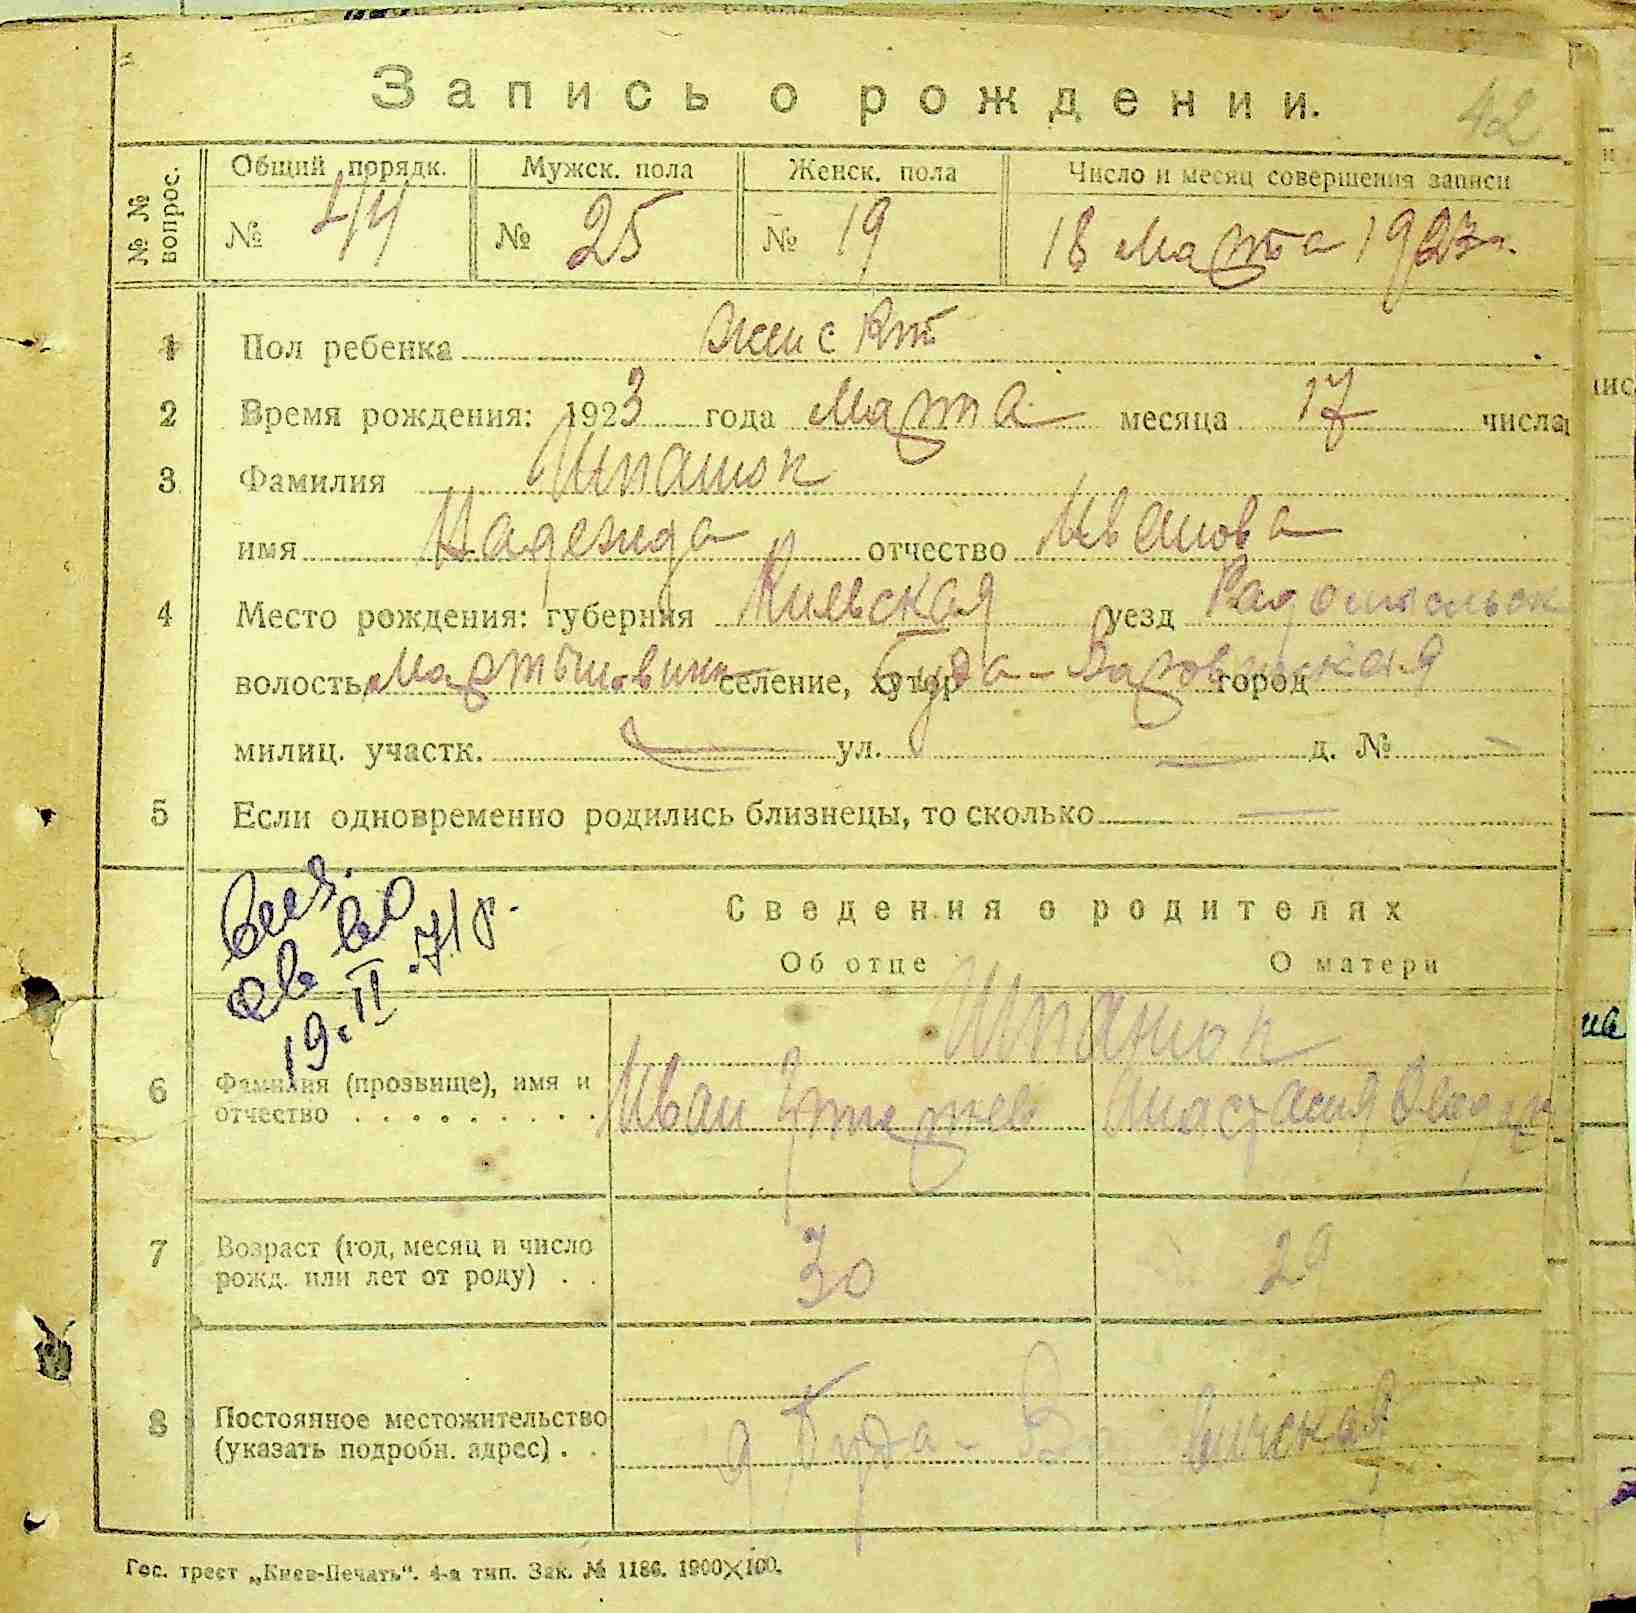 42
Запись о рождении.
№ № вопрос.
Общий порядк. Мужск. пола Женск. пола Число и месяц совершения записи
№ 44 № 25 № 19 18 марта 1923 г.
1 Пол ребенка
2 Время рождения: 1923 года марта месяца 17 числа
3 Фамилия Шпанюк
имя Надежида отчество Иванова
4 Место рождения: губерния Киевская уезд Радомысльск
волость Мартыновичи селение, хутор город Буда-Варовичская
милиц. участк. — ул. — д. № —
5 Если одновременно родились близнецы, то сколько —
Сведения о родителях
Об отце О матери
19.II.71 р.
Шпанюк
6 Фамилия (прозвище), имя и Иван Анастасия
отчество . . . . . . . . .
7 Возраст (год, месяц и число
рожд. или лет от роду) . . 30 29
8 Постоянное местожительство
(указать подробн. адрес) . . д Буда-Варовичская
Гос. трест „Киев-Печать“. 4-я тип. Зак. № 1186. 1900×100.